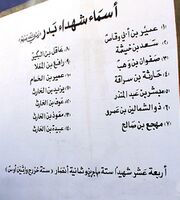 أسماء شهداء بدر
١) عمير بن أبي وقاص
٢) سعد بن خيثمة
٣) صفوان بن وهب
٤) حارثة بن سراقة
٥) مبشر بن عبد المنذر
٦) ذو الشمالين بن عمرو
٧) مهجع بن صالح
٨) عاقل بن البكير
٩) رافع بن المعلا
١٠) عمير بن الحمام
١١) يزيد بن الحارث
١٢) معوذ بن الحارث
١٣) عوف بن الحارث
١٤) عبيدة بن الحارث
أربعة عشر شهيدا ستة مهاجرين وثمانية أنصار (ستة خزرج واثنين أوس)